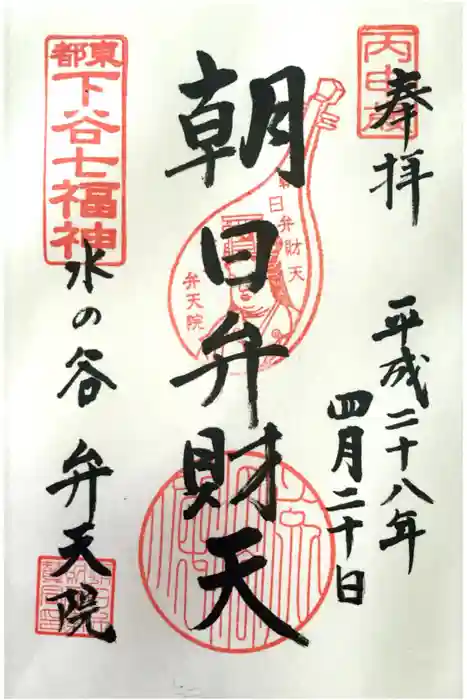 丙申歳
奉拝
平成二十八年
四月二十日
朝日弁財天
朝日弁財天
弁天院
東都
下谷七福神
水の谷 弁天院